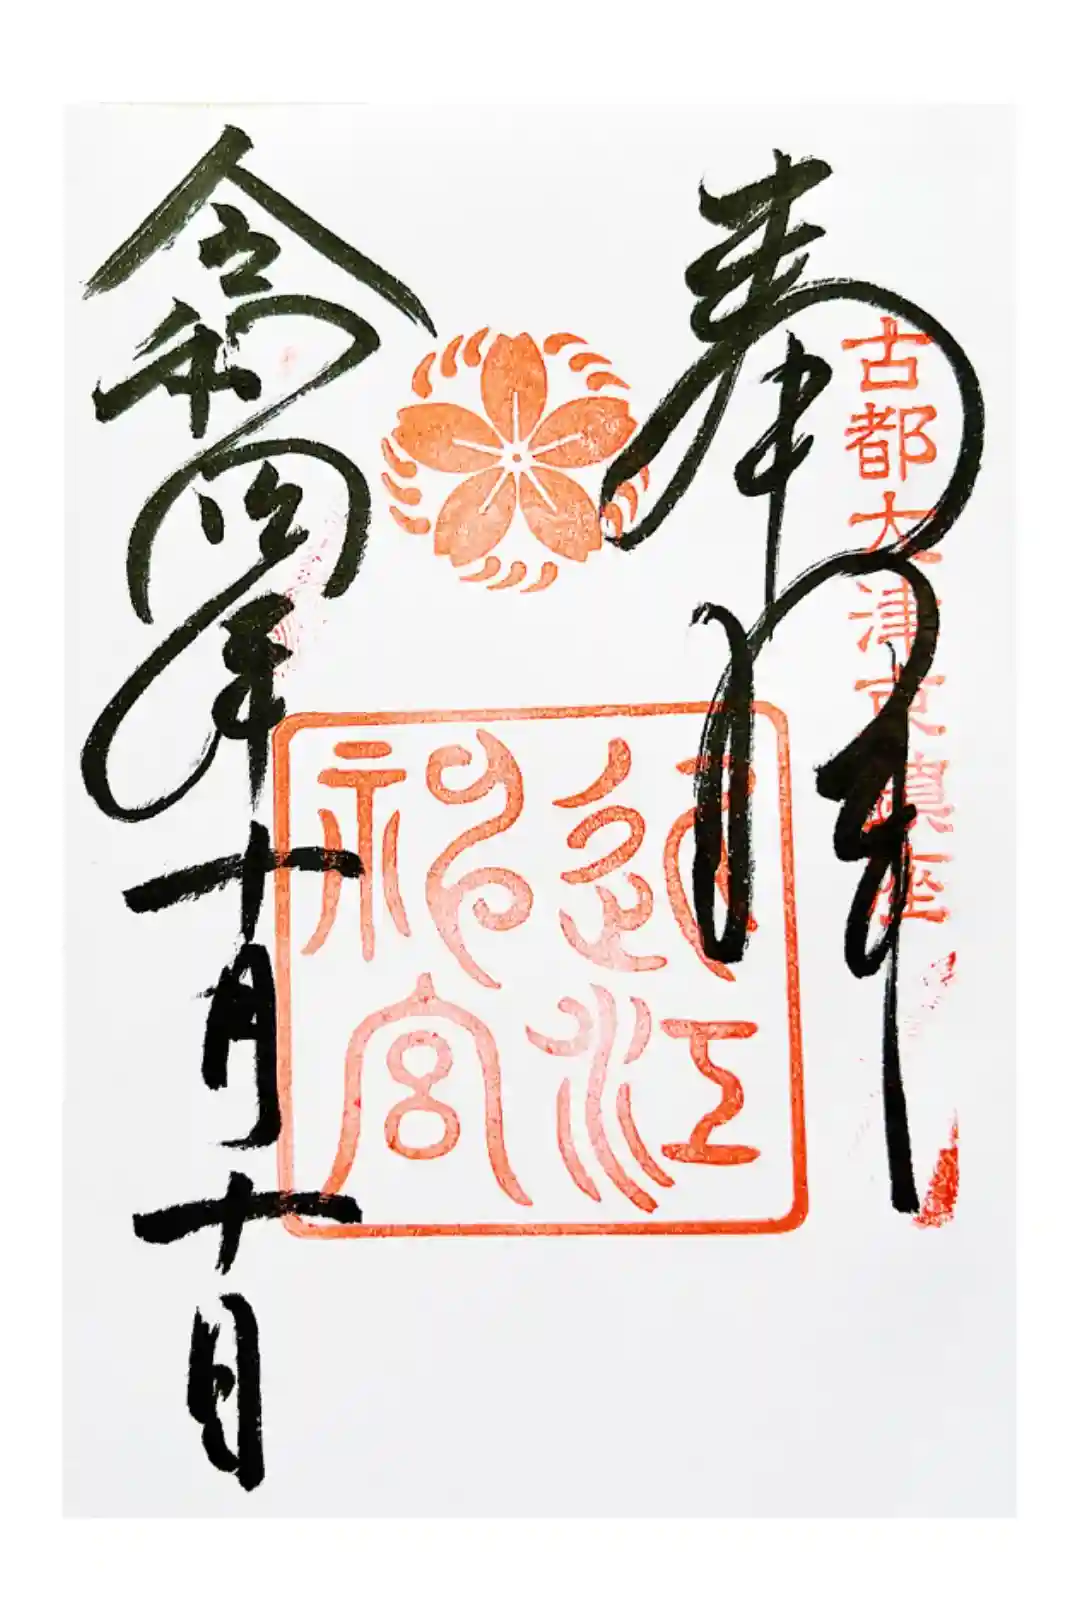 奉拝
古都大津京鎮座
近江
神宮
令和四年十月十日